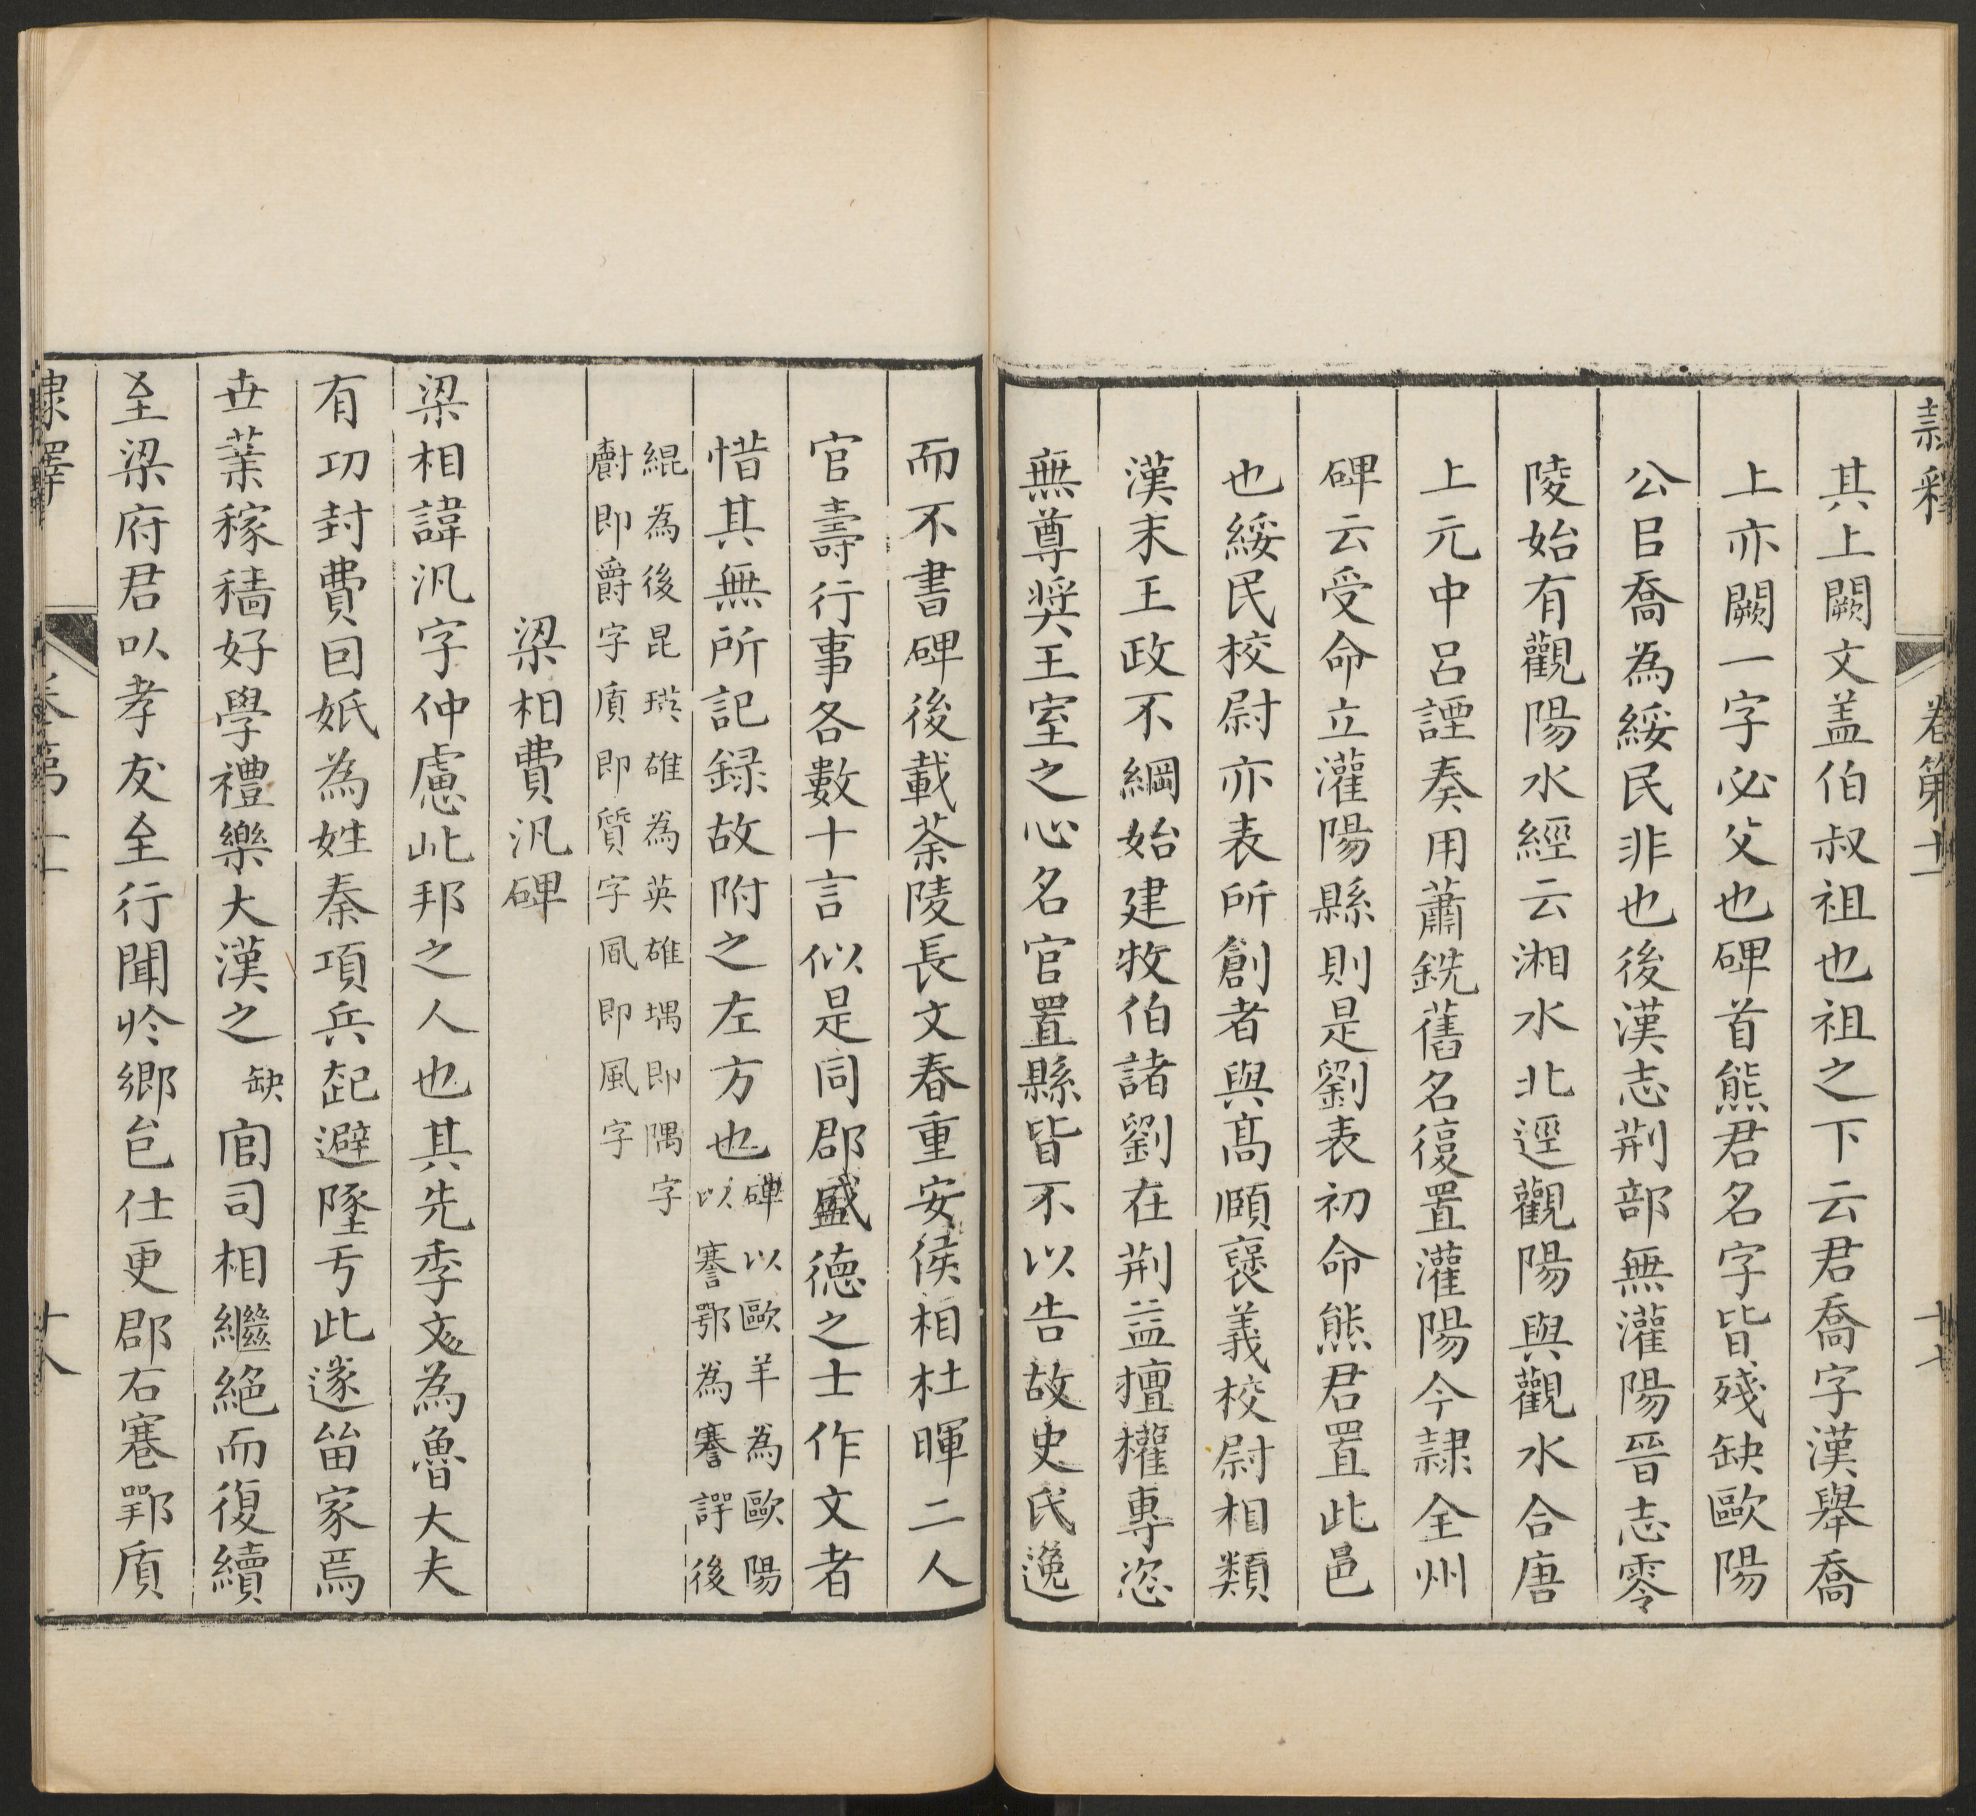 隸釋 卷第十一 十七
其上闕文盖伯叔祖也祖之下云君喬字漢舉喬
上亦闕一字必父也碑首熊君名字皆殘缺歐陽
公㠯喬為綏民非也後漢志荆部無灌陽晉志零
陵始有觀陽水經云湘水北逕觀陽與觀水合唐
上元中呂諲奏用蕭銑舊名復置灌陽今隷全州
碑云受命立灌陽縣則是劉表初命熊君置此邑
也綏民校尉亦表所創者與髙頤襃義校尉相類
漢末王政不綱始建牧伯諸劉在荆益擅權專恣
無尊奨王室之心名官置縣皆不以告故史氏逸
而不書碑後載荼陵長文春重安侯相杜暉二人
官壽行事各數十言似是同郡盛德之士作文者
惜其無所記録故附之左方也 碑以歐羊為歐陽
以謇鄂為謇諤後
緄為後昆瑛雄為英雄堣即隅字
𤔲即爵字㡿即質字凬即風字
梁相費汎碑
梁相諱汎字仲慮此邦之人也其先季文為魯大夫
有功封費因氏為姓秦項兵起避墬于此遂畄家焉
丗業稼穡好學禮樂大漢之 缺 官司相繼絶而復續
至梁府君以孝友至行聞於鄉邑仕更郡右謇鄂質
隸釋 卷第十一 十八